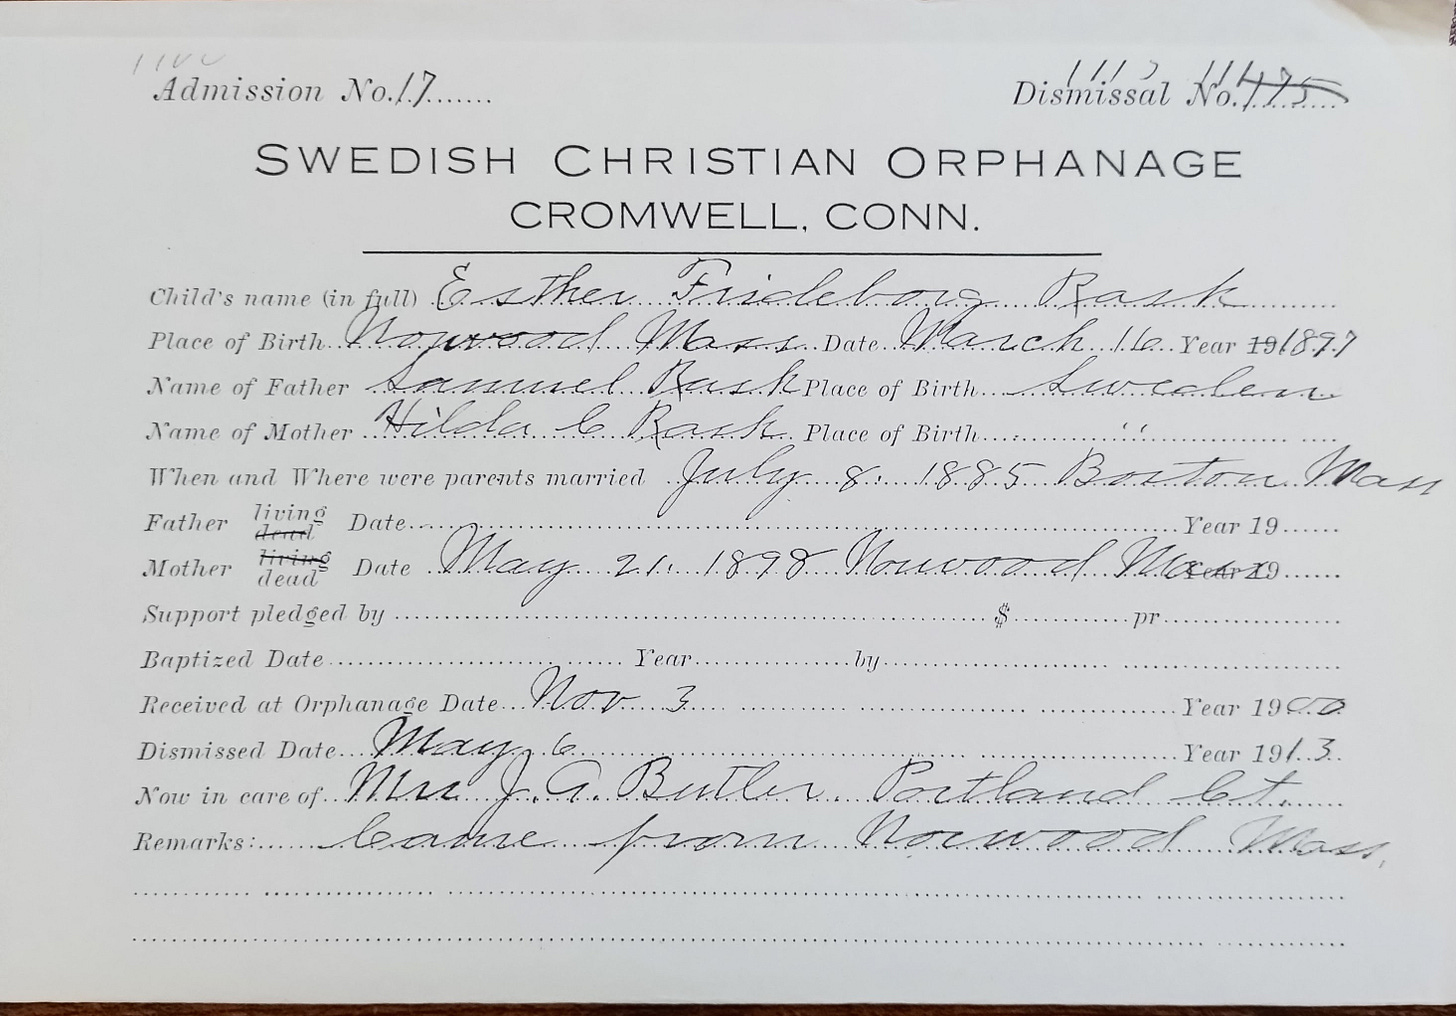 1100
Admission No. 17
1113 114
Dismissal No. 175
SWEDISH CHRISTIAN ORPHANAGE
CROMWELL, CONN.
Child's name (in full) Esther Frideborg Rask
Place of Birth Norwood Mass Date March 16 Year 19 1897
Name of Father Samuel Rask Place of Birth Sweden
Name of Mother Hilda C Rask Place of Birth ''
When and Where were parents married July 8. 1885 Boston Mass
Father living dead Date Year 19
Mother living dead Date May 21. 1898 Norwood Mass Year 19
Support pledged by $ pr
Baptized Date Year by
Received at Orphanage Date Nov. 3 Year 1900
Dismissed Date May 6 Year 1913
Now in care of Mrs J. A. Butler. Portland Ct.
Remarks: Came from Norwood Mass.